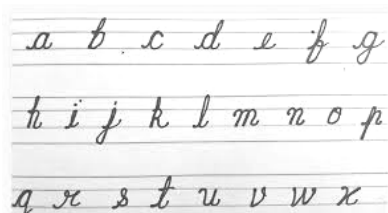 a b c d e f g
h i j k l m n o p
q r s t u v w x